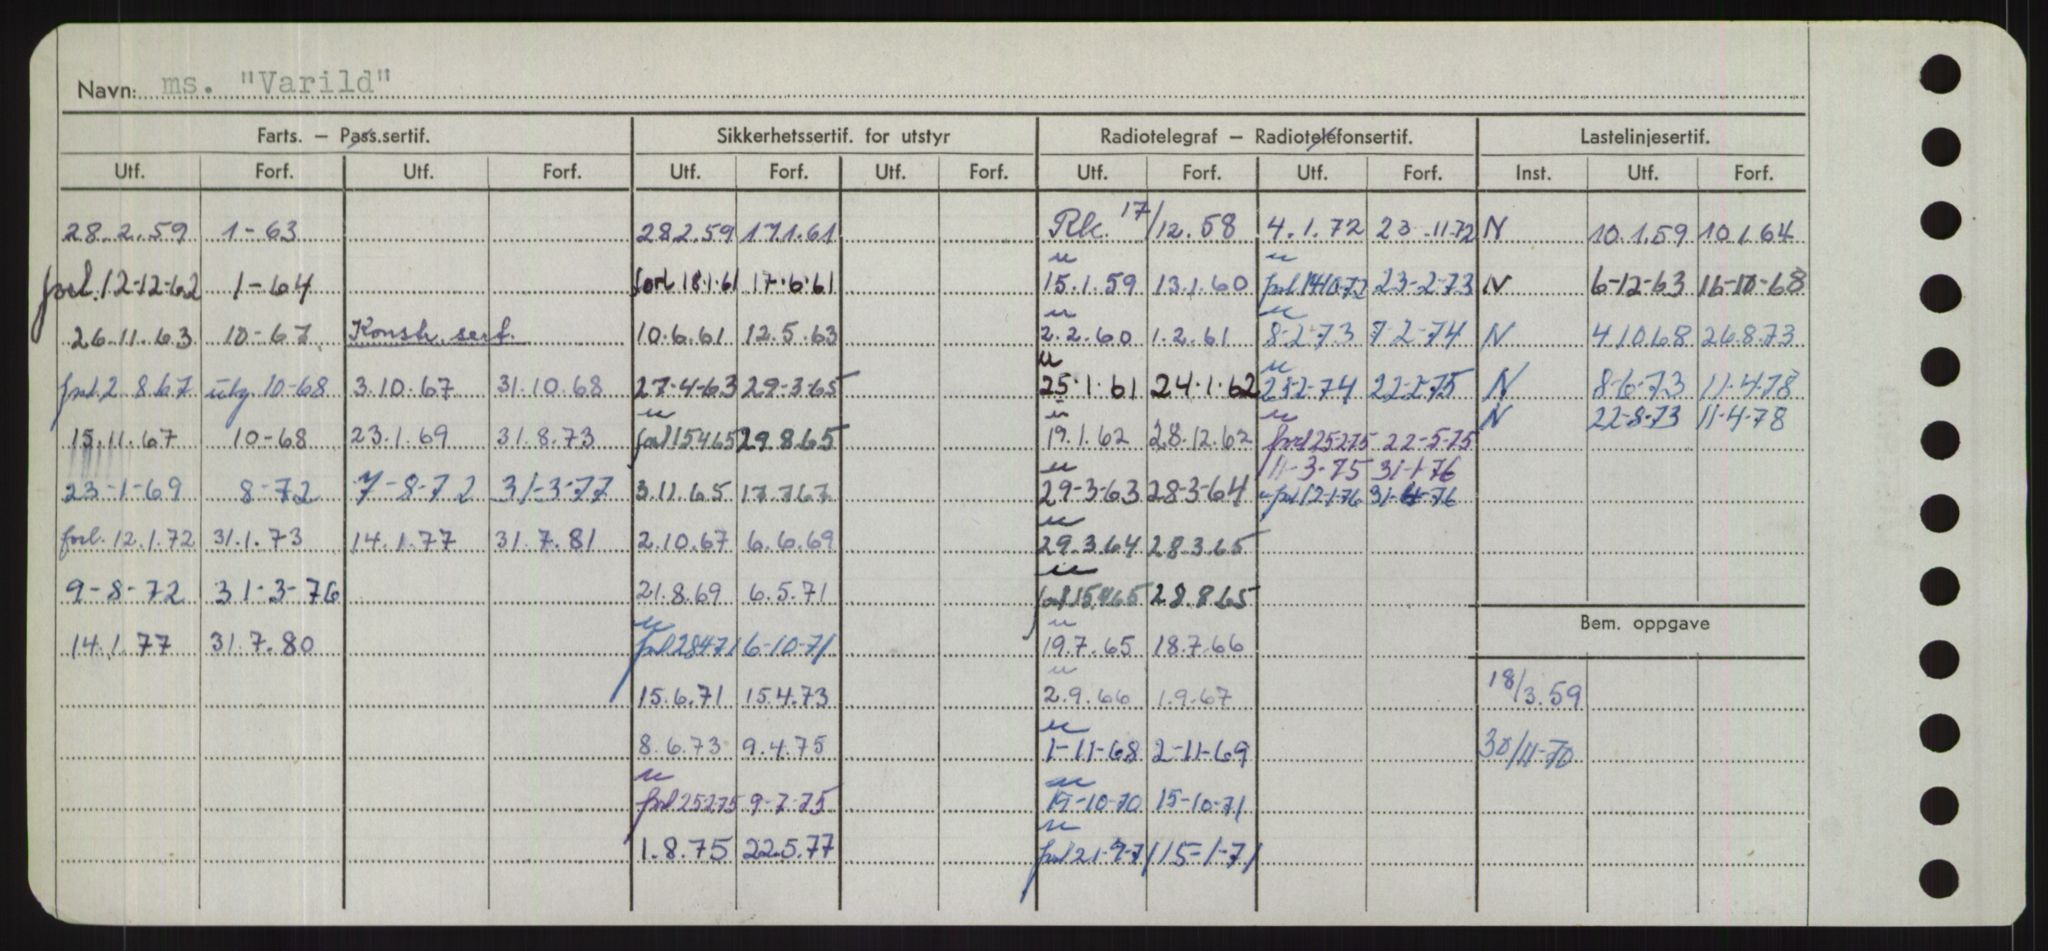 Navn: ms. "Varild"
Farts. — Pass.sertif. Sikkerhetssertif. for utstyr Radiotelegraf — Radiotelefonsertif. Lastelinjesertif.
Utf. Forf. Utf. Forf. Utf. Forf. Utf. Forf. Utf. Forf. Utf. Forf. Inst. Utf. Forf.
28.2.59 1-63 28.2.59 17.1.61 Rk. 17/12.58 4.1.72 23-11-72 N 10.1.59 10.1.64
forl. 12-12-62 1-64 forl 18.1.61 17.6.61 " 15.1.59 13.1.60 " forl 14-10-72 23-2-73 N 6-12-63 16-10-68
26.11.63 10-67 Konstr. sert. 10.6.61 12.5.63 " 2.2.60 1.2.61 " 8-2-73 7-2-74 N 4.10.68 26.8.73
forl 2.8.67 utg 10-68 3.10.67 31.10.68 27-4-63 29-3-65 " 25.1.61 24.1.62 " 23-2-74 22-2-75 N 8-6-73 11-4-78
15.11.67 10-68 23.1.69 31.8.73 " forl 15.4.65 29.8.65 " 19.1.62 28.12.62 " forl 25-2-75 22-5-75 N 22-8-73 11-4-78
11-3-75 31-1-76
23-1-69 8-72 7-8-72 31-3-77 3.11.65 17.7.67 " 29-3-63 28-3-64 " forl 12-1-76 31-4-76
forl. 12.1.72 31.1.73 14.1.77 31.7.81 2.10.67 6.6.69 " 29.3.64 28.3.65
9-8-72 31-3-76 21.8.69 6.5.71 " forl 15.4.65 28.8.65
Bem. oppgave
14.1.77 31.7.80 " forl 28471 6-10-71 " 19.7.65 18.7.66
15.6.71 15.4.73 " 2.9.66 1.9.67 18/3.59
8.6.73 9.4.75 " 1-11-68 2-11-69 30/11-70
" forl 25275 9-7-75 " 15-10-71
1.8.75 22.5.77 " forl 21-9-71 15-1-71